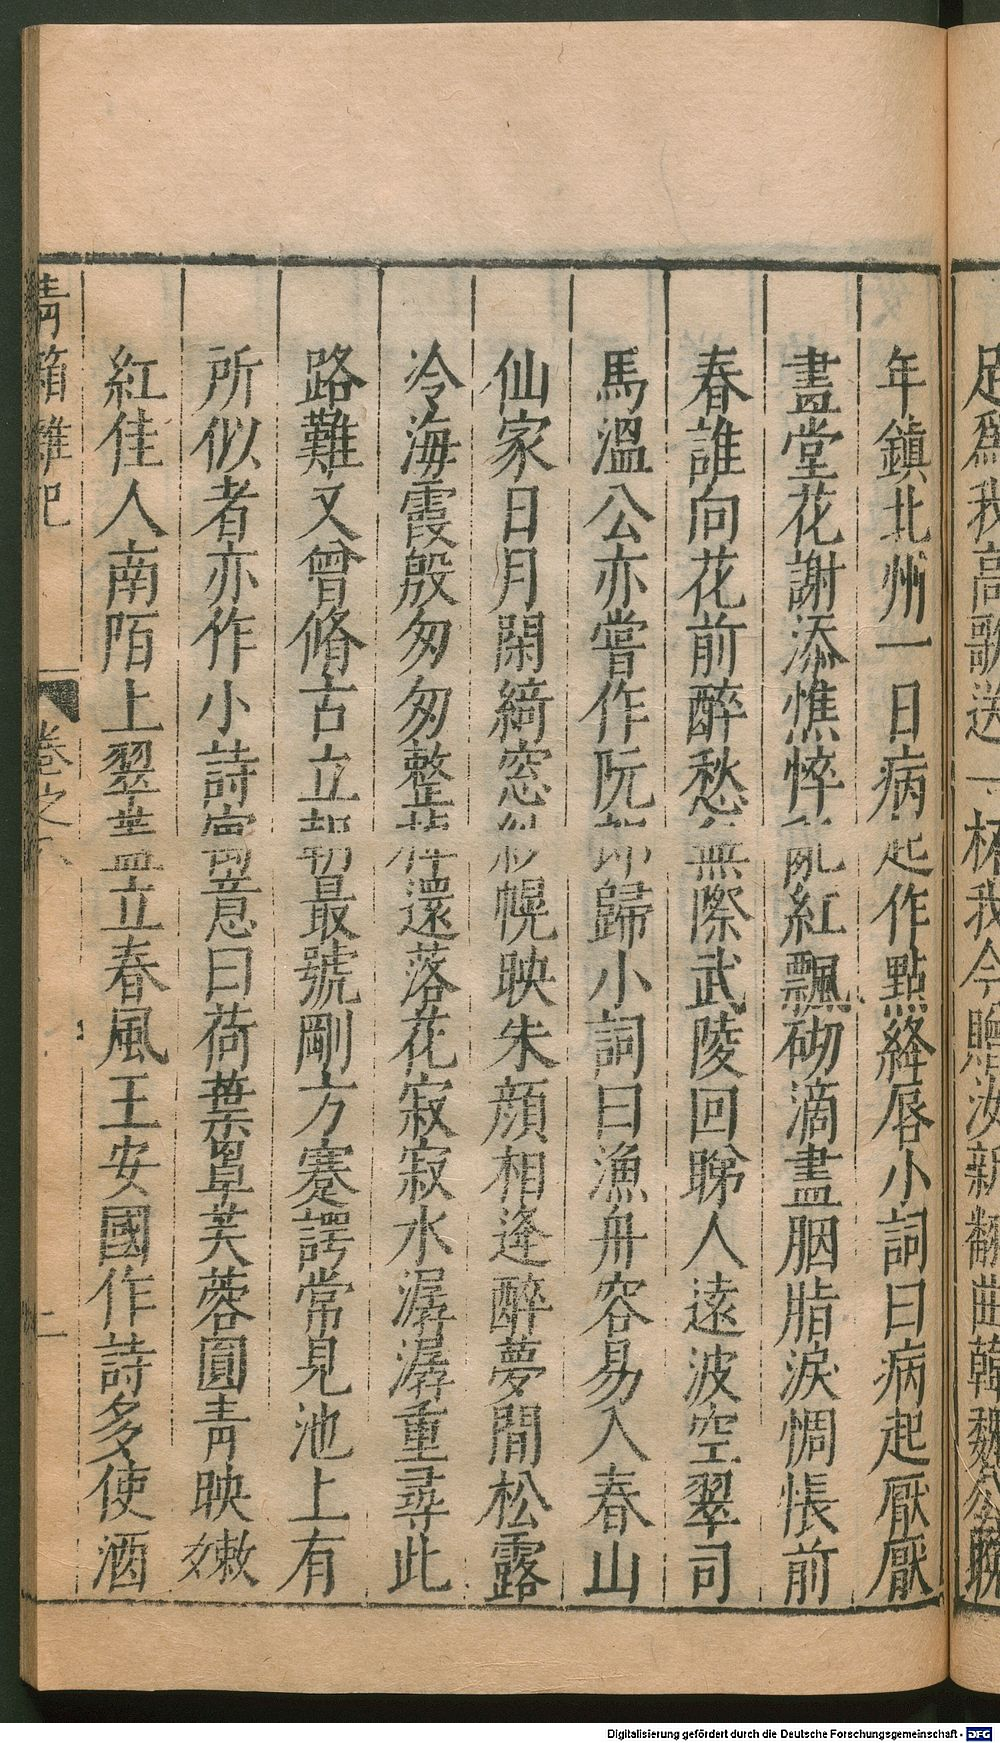 足爲我高歌送一杯我今贈汝新翻曲韓魏公
年鎮北州一日病起作點絳唇小詞曰病起厭厭
畫堂花謝添憔悴亂紅飄砌滴盡胭脂淚惆悵前
春誰向花前醉愁無際武陵回睇人遠波空翠司
馬溫公亦嘗作阮郎歸小詞曰漁舟容易入春山
仙家日月閑綺窓紗幌映朱顔相逢醉夢間松露
冷海霞殷匆匆整棹還落花寂寂水潺潺重尋此
路難又曾脩古立朝最號剛方蹇諤常見池上有
所似者亦作小詩寓意曰荷葉罩芙蓉圓青映嫩
紅佳人南陌上翠蓋立春風王安國作詩多使酒
青箱雜記
卷之八
二
Digitalisierung gefördert durch die Deutsche Forschungsgemeinschaft - DFG